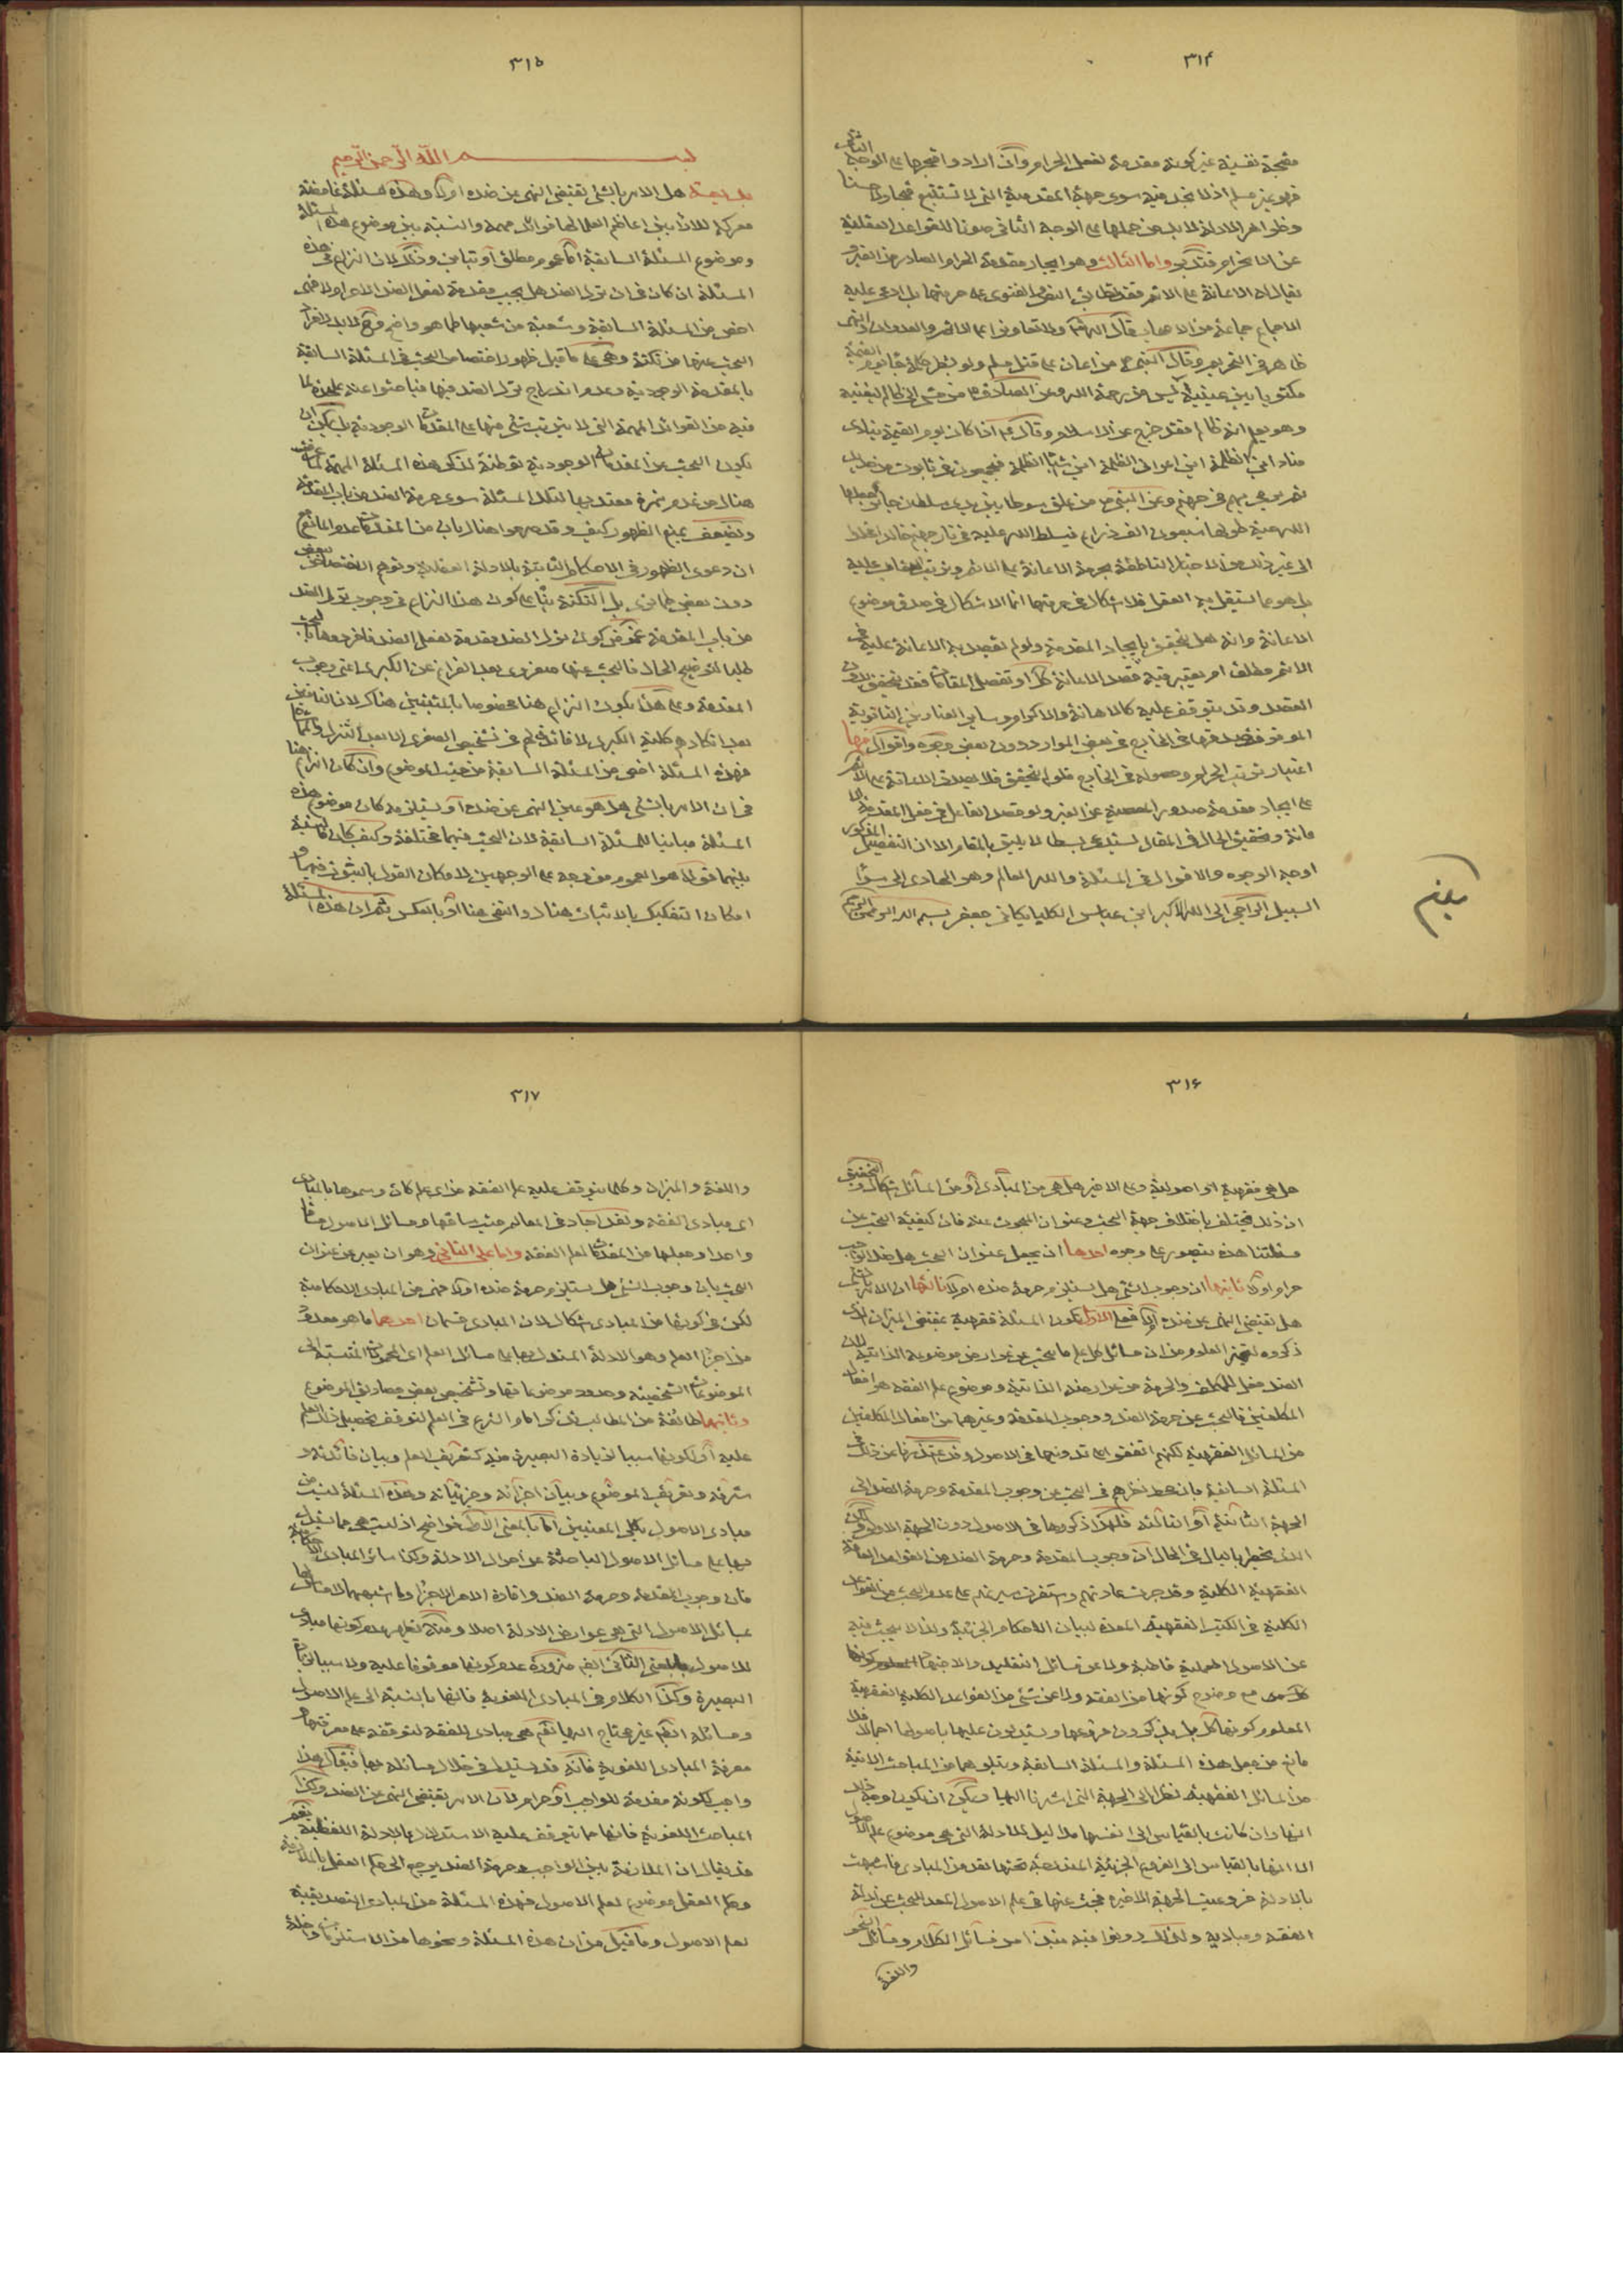 ٣١۴
مقبحة نفسية غير كونه مقدمة لفعل الحرام وان اراد واقبحها على الوجه الثانى
فهو غير مسلم اذ لا نجد فيه سوى جهة المقدمية التى لا تستتبع قبحا ولا حسنا
وظواهر الادلة لابد من حملها على الوجه الثانى صونا للقواعد العقلية
عن الانخرام فتدبر واما الثالث وهو ايجاد مقدمة الحرام الصادر من الغير و
يقال له الاعانة على الاثم فقد تطابق النص والفتوى على حرمتها بل ادعى عليه
الاجماع جماعة من الاصحاب قال الله تعالى ولا تعاونوا على الاثم والعدوان والنهى
ظاهر فى التحريم وقال النبى ص من اعان على قتل مسلم ولو بشطر كلمة جاء يوم القيمة
مكتوبا بين عينيه آيس من رحمة الله وعن الصادق ع من مشى الى ظالم ليعينه
وهو يعلم انه ظالم فقد خرج عن الاسلام وقال ع اذا كان يوم القيمة ينادى
مناد اين الظلمة اين اعوان الظلمة اين اشباه الظلمة فيجمعون فى تابوت من حديد
ثم يرمى بهم فى جهنم وعن النبى ص من علق سوطا بين يدى سلطان جائر جعلها
الله حية طولها سبعون الف ذراع فيسلط الله عليه فى نار جهنم خالدا مخلدا
الى غير ذلك من الاخبار الناطقة بحرمة الاعانة على الاثم وترتب العقاب عليه
بل هو مما يستقل به العقل فلا اشكال فى حرمتها انما الاشكال فى صدق موضوع
الاعانة وانه هل يتحقق بايجاد المقدمة ولو لم يقصد به الاعانة عليه فى
الاثم مطلقا ام يعتبر فيه قصد الاعانة كل او تفصل المقامات فقد يتحقق بدون
القصد وقد يتوقف عليه كالاهانة والاكرام وساير العناوين الثانوية
الموقوف صدقها فى الخارج فى بعض الموارد دون بعض وجوه واقوال منها
اعتبار ترتب الحرام وحصوله فى الخارج فلو لم يتحقق فلا يصدق الاعانة على الاثم
على ايجاد مقدمة صدور المعصية عن الغير ولو قصد الفاعل فى فعل المقدمة
وتحقيق الحال فى المقال يستدعى بسطا لا يليق بالمقام الا ان التفصيل المذكور
اوجه الوجوه والاقوال فى المسئلة والله العالم وهو الهادى الى سواء
السبيل الراجى الى الله الاكبر ابن عباس الكلپايكانى جعفر بسم الله الرحمن الرحيم
٣١۵
بسم الله الرحمن الرحيم
هل الامر بالشئ يقتضى النهى عن ضده اولا وهذه مسئلة غامضة
معركة للآراء بين اعاظم العلماء لها فوائد مهمة والنسبة بين موضوع هذه المسئلة
وموضوع المسئلة السابقة اما عموم مطلق او تباين وذلك لان النزاع فى هذه
المسئلة ان كان فى ان ترك الضد هل يجب مقدمة لفعل الضد الاخر ام لا فهى
اخص من المسئلة السابقة وشعبة من شعبها كما هو واضح وح لابد لافراد
البحث عنها من نكتة وهى على ما قيل ظهور اختصاص البحث فى المسئلة السابقة
بالمقدمة الوجودية وعدم اندراج ترك الضد فيها فباحثوا عنه عليحدة لما
فيه من الفوائد المهمة التى لا يترتب شئ منها على المقدمات الوجودية بل يمكن ان
يكون البحث عن المقدمات الوجودية توطئة لذكر هذه المسئلة المهمة لما عرفت
هناك من عدم ثمرة معتد بها لتلك المسئلة سوى حرمة الضد من باب المقدمة
ويضعف بمنع الظهور كيف وقد صرحوا هناك بان من المقدمات عدم المانع
ان دعوى الظهور فى الاحكام الثابتة بالادلة العقلية وتوهم الاختصاص ببعض
دون بعض كما ترى بل النكتة بناء على كون هذا النزاع فى وجوب ترك الضد
من باب المقدمة غموض كون ترك الضد مقدمة لفعل الضد فافرد معها بالبحث
طلبا لتوضيح الحال فالبحث عنها صغروى بعد الفراغ عن الكبرى اعنى وجوب
المقدمة وعلى هذا يكون النزاع هنا مخصوصا بالمثبتين هناك لان النافين
بعد انكارهم كلية الكبرى لا فائدة لهم فى تشخيص الصغرى الا بعد التنزل
فهذه المسئلة اخص من المسئلة السابقة من حيث الموضوع وان كان النزاع هنا
فى ان الامر بالشئ هل هو عين النهى عن ضده او يستلزمه كان موضوع هذه
المسئلة مباينا للمسئلة السابقة لان البحث فيهما مختلفة وكيف كان فالنسبة
بينهما قولا هو العموم من وجه على الوجهين لامكان القول بالثبوت فيهما و
امكان التفكيك بالاثبات هناك والنفى هنا او بالعكس ثم ان هذه المسئلة
٣١۶
هل هى فقهية او اصولية وعلى الاخير هل هى من المبادى او من المسائل اشكال والتحقيق
ان ذلك يختلف باختلاف جهة البحث وعنوان المبحوث عنه فان كيفية البحث عن
مسئلتنا هذه يتصور على وجوه احدها ان يجعل عنوان البحث هل ضد الواجب
حرام اولا ثانيها ان وجوب الشئ هل يستلزم حرمة ضده ام لا ثالثها ان الامر بالشئ
هل يقتضى النهى عن ضده ام لا فعلى الاول تكون المسئلة فقهية بمقتضى الميزان الذى
ذكروه لتميز العلوم من ان مسائل كل علم ما يبحث عن عوارض موضوعه الذاتية لان
الضد فعل للمكلف والحرمة من عوارضه الذاتية وموضوع علم الفقه هو افعال
المكلفين فالبحث عن حرمة الضد ووجوب المقدمة وغيرهما من افعال المكلفين
من المسائل الفقهية لكنهم اتفقوا على تدوينها فى الاصول وقد اعتذرنا عن ذلك فى
المسئلة السابقة بان محط نظرهم فى البحث عن وجوب المقدمة وحرمة الضد الى
الجهة الثانية او الثالثة فلهذا ذكروها فى الاصول دون الجهة الاولى
الذى يخطر بالبال فى الحال ان وجوب المقدمة وحرمة الضد من القواعد العامة
الفقهية الكلية وقد جرت عادتهم واستقرت سيرتهم على عدم البحث من القواعد
الكلية فى الكتب الفقهية المعدة لبيان الاحكام الجزئية ولذا لا يبحث فيه
عن الاصول العملية قاطبة ولا عن مسائل التقليد والاجتهاد
مع وضوح كونها من الفقه ولا عن شئ من القواعد الكلية الفقهية
المعلوم كونها كل بل يذكرون فروعها ويستدلون عليها باصولها اجمالا فلا
مانع من جعل هذه المسئلة والمسئلة السابقة ويتلوهما من المباحث الاتية
من المسائل الفقهية نظرا الى الجهة التى اشرنا اليها ويمكن ان يكون وجه ذلك
انها وان كانت بالقياس الى انفسها مداليل للادلة التى هى موضوع علم الاصول
الا انها بالقياس الى الفروع الجزئية المندرجة تحتها تعد من المبادى
بالادلة فروعيت الجهة الاخيرة فبحث عنها فى علم الاصول المعد للبحث عن ادلة
الفقه ومباديه ولذلك دونوا فيه نبذا من مسائل الكلام ومسائل النحو
واللغة
٣١٧
واللغة والميزان وكلما يتوقف عليه علم الفقه من اى علم كان وسموها بالمبادى
اى مبادى الفقه ولقد اجاد فى المعالم حيث ساقها ومسائل الاصول مساقا
واحدا وجعلها من المقدمات لعلم الفقه واما على الثانى وهو ان يعبر عن عنوان
البحث بان وجوب الشئ هل يستلزم حرمة ضده اولا فهى من المبادى الاحكامية
لكن فى كونها من المبادى اشكال لان المبادى قسمان احدهما ما هو معدود
من اجزاء العلم وهو الادلة المستدل بها على مسائل العلم اى المحمولات المنتسبة الى
الموضوعات الشخصية وحدود موضوعاتها وتشخيص بعض مصاديق الموضوع
وثانيهما طائفة من المطالب يذكر امام الشروع فى العلم لتوقف تحصيل ذلك العلم
عليه او لكونها سببا لزيادة البصيرة فيه كتعريف العلم وبيان فائدته و
شرفه وتعريف الموضوع وبيان اجزائه وجزئياته وهذه المسئلة ليست من
مبادى الاصول بكلى المعنيين اما بالمعنى الاول فواضح اذ ليست هى مما يستدل
بها على مسائل الاصول الباحثة عن احوال الادلة وكذا سائر المبادى الاحكامية
فان وجوب المقدمة وحرمة الضد وافادة الامر الاجزاء وما اشبههما لا مساس لها
بمسائل الاصول التى هى عوارض الادلة اصلا ومنه يظهر عدم كونها مبادى
للاصول بالمعنى الثانى ايضا ضرورة عدم كونها موقوفا عليه ولا سببا لزيادة
البصيرة وكذا الكلام فى المبادى اللغوية فانها بالنسبة الى علم الاصول
ومسائله ايضا غير محتاج اليها نعم هى مبادى للفقه لتوقفه على معرفتها
معرفة المبادى اللغوية فانه قد يستدل فى خلال مسائله بها فيقال هذا
واجب لكونه مقدمة للواجب او حرام لان الامر يقتضى النهى عن الضد وكذا
المباحث اللغوية فانها مما يتوقف عليه الاستدلال بالادلة اللفظية نعم
قد يقال ان الملازمة بين الواجب وحرمة الضد يرجع الى حكم العقل بالملازمة
وحكم العقل موضوع لعلم الاصول فهذه المسئلة من المبادى التصديقية
لعلم الاصول وما قيل من ان هذه المسئلة ونحوها من الاستلزامات داخلة